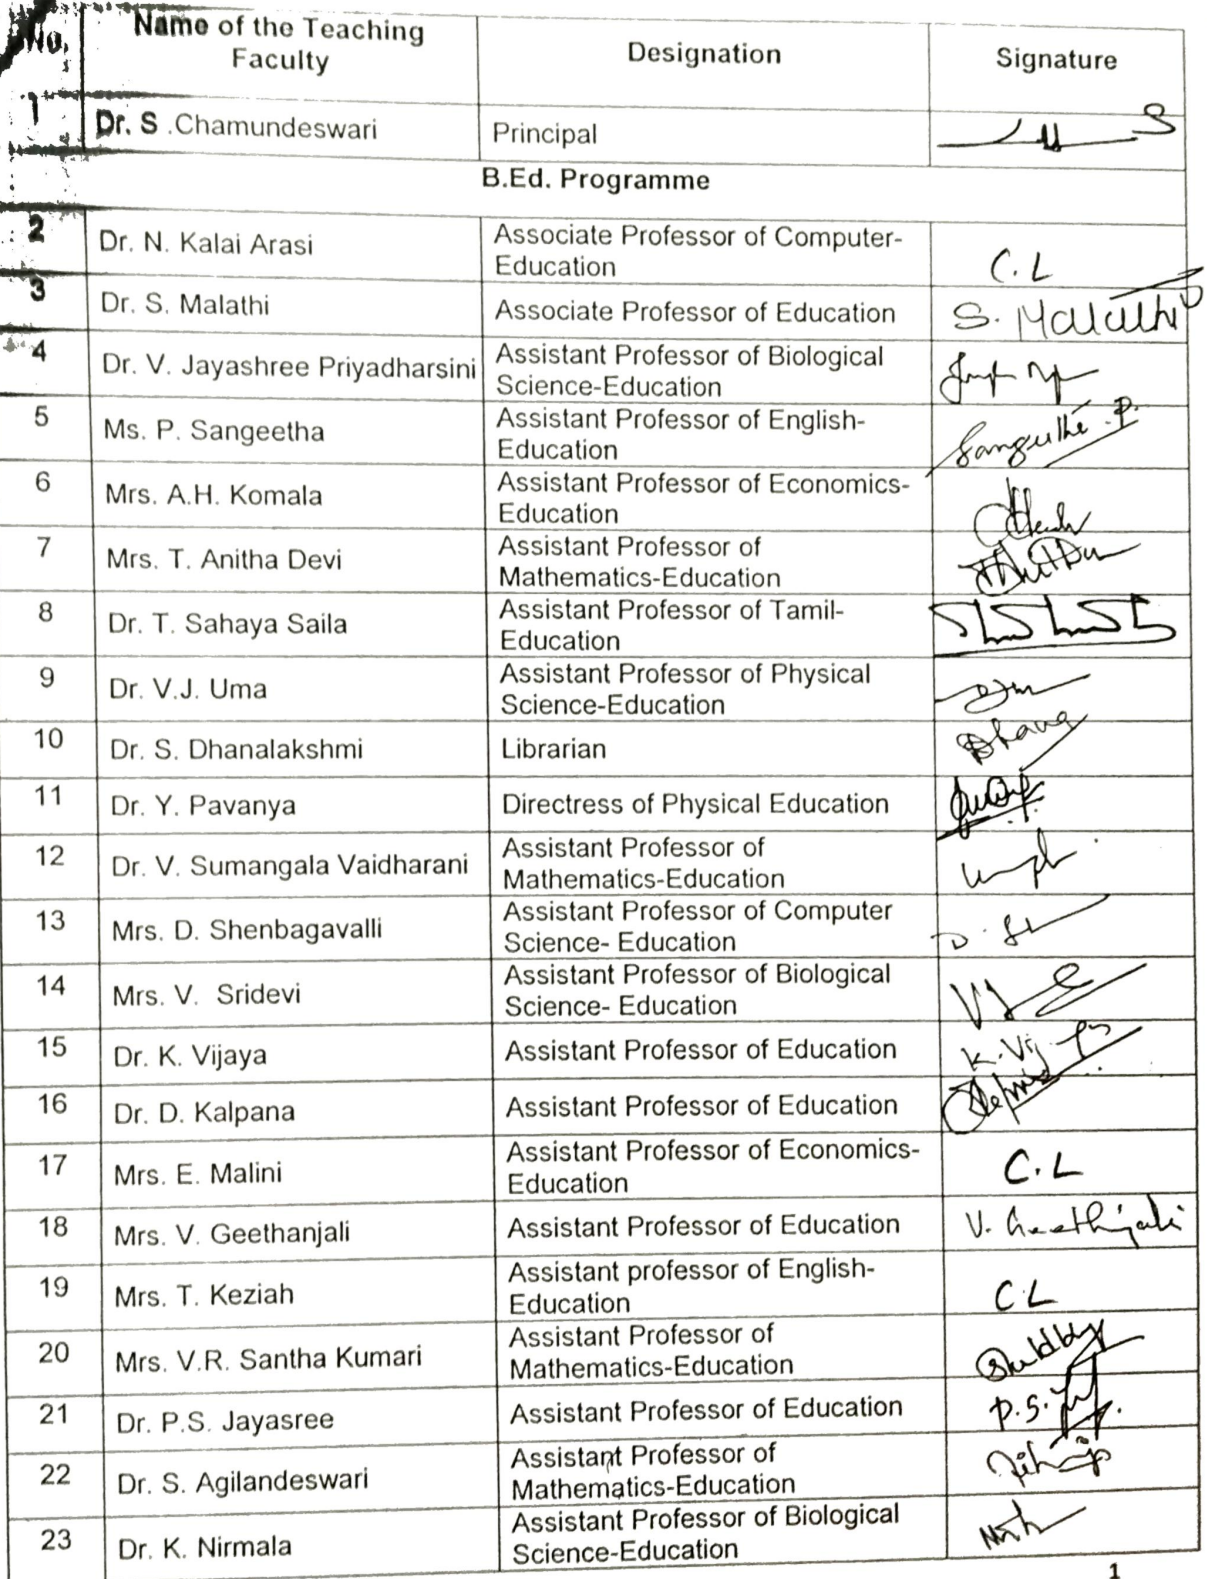 No. Name of the Teaching Designation Signature
Faculty
1 Dr. S .Chamundeswari Principal
B.Ed. Programme
2 Dr. N. Kalai Arasi Associate Professor of Computer- C.L
Education
3 Dr. S. Malathi Associate Professor of Education S. Malathi
4 Dr. V. Jayashree Priyadharsini Assistant Professor of Biological
Science-Education
5 Ms. P. Sangeetha Assistant Professor of English- Sangeetha .P.
Education
6 Mrs. A.H. Komala Assistant Professor of Economics-
Education
7 Mrs. T. Anitha Devi Assistant Professor of
Mathematics-Education
8 Dr. T. Sahaya Saila Assistant Professor of Tamil-
Education
9 Dr. V.J. Uma Assistant Professor of Physical
Science-Education
10 Dr. S. Dhanalakshmi Librarian
11 Dr. Y. Pavanya Directress of Physical Education
12 Dr. V. Sumangala Vaidharani Assistant Professor of
Mathematics-Education
13 Mrs. D. Shenbagavalli Assistant Professor of Computer
Science- Education
14 Mrs. V. Sridevi Assistant Professor of Biological
Science- Education
15 Dr. K. Vijaya Assistant Professor of Education
16 Dr. D. Kalpana Assistant Professor of Education
17 Mrs. E. Malini Assistant Professor of Economics- C.L
Education
18 Mrs. V. Geethanjali Assistant Professor of Education V. Geethanjali
19 Mrs. T. Keziah Assistant professor of English- C.L
Education
20 Mrs. V.R. Santha Kumari Assistant Professor of
Mathematics-Education
21 Dr. P.S. Jayasree Assistant Professor of Education
22 Dr. S. Agilandeswari Assistant Professor of
Mathematics-Education
23 Dr. K. Nirmala Assistant Professor of Biological
Science-Education
1